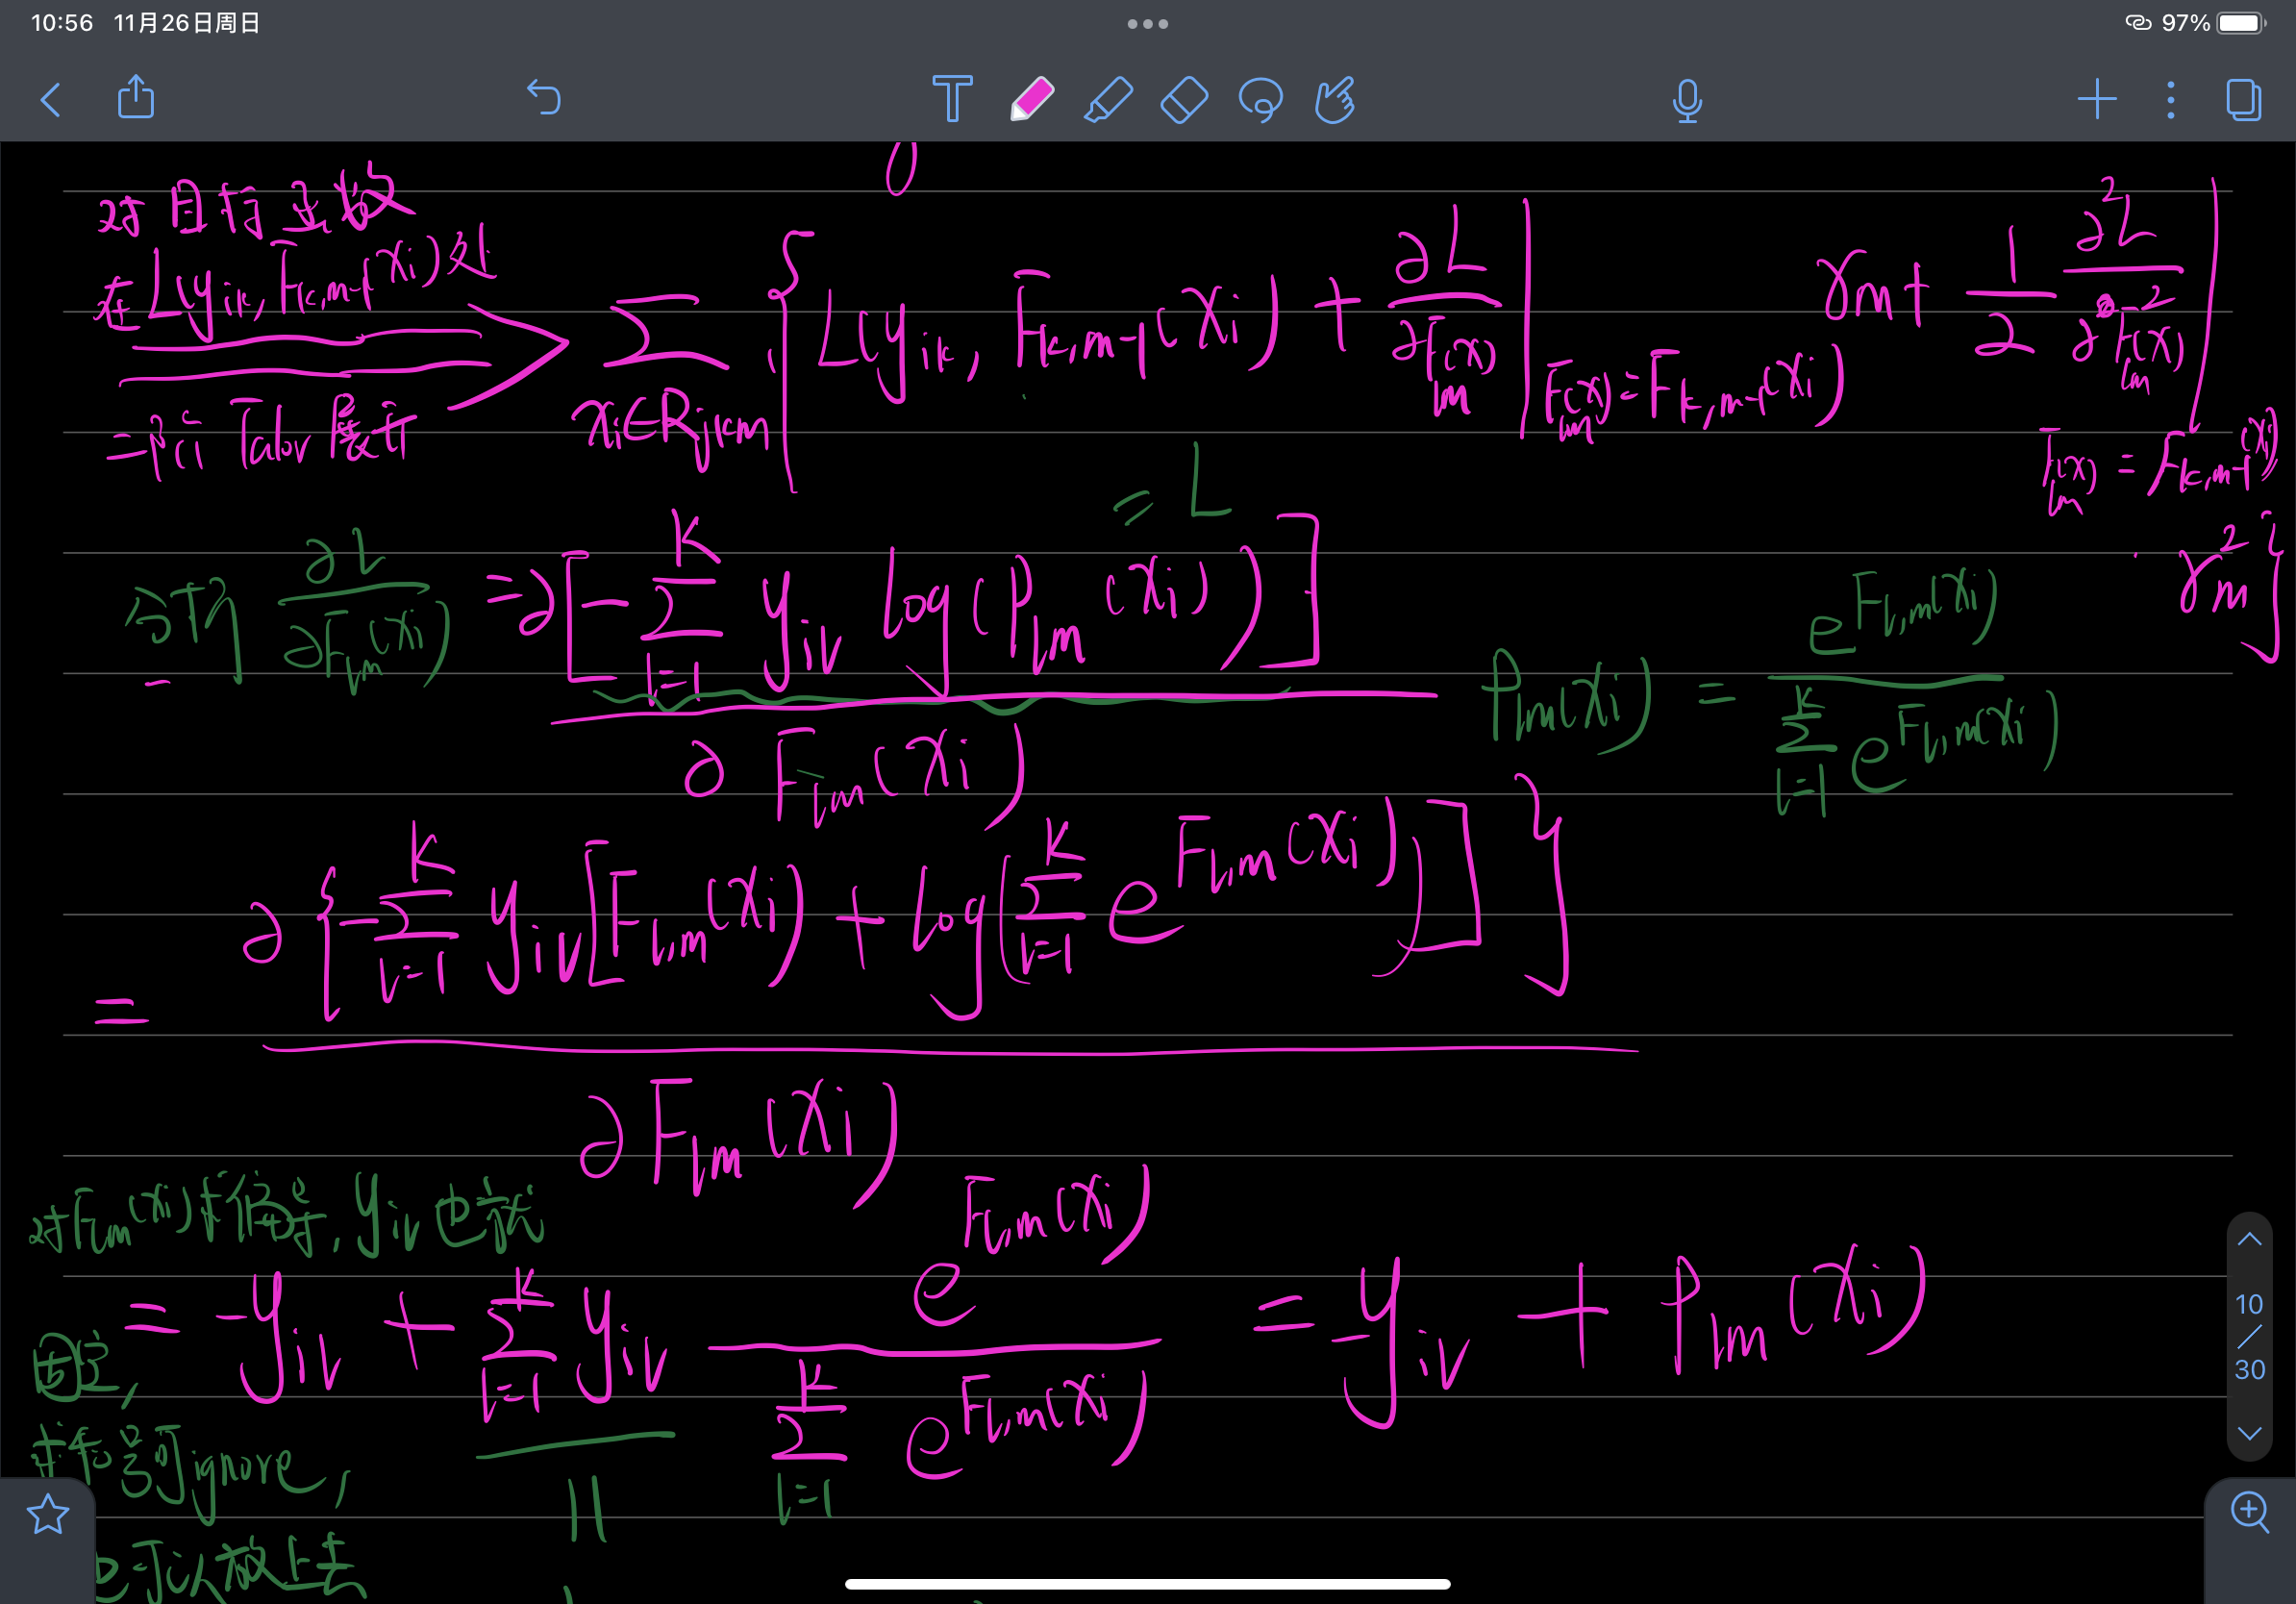 10:56 11月26日周日 97%
对目标函数
在 L(y_{ik}, F_{k,m-1}(x_i)) 处
二阶 Talor 展开
\sum_{x_i \in R_{jkm}} \{ L(y_{ik}, F_{k,m-1}(x_i)) + \frac{\partial L}{\partial F_{lm}(x)} |_{F_{lm}(x) = F_{k,m-1}(x_i)} \gamma_m + \frac{1}{2} \frac{\partial^2 L}{\partial F^2_{lm}(x)} |_{F_{lm}(x) = F_{k,m-1}(x_i)} \cdot \gamma_m^2 \}
= L
\frac{\partial L}{\partial F_{lm}(x_i)} = \frac{\partial [ -\sum_{l=1}^{K} y_{il} \log(P_{lm}(x_i)) ]}{\partial F_{lm}(x_i)}
P_{lm}(x_i) = \frac{e^{F_{l,m}(x_i)}}{\sum_{l=1}^{K} e^{F_{l,m}(x_i)}}
= \frac{\partial \{ -\sum_{l=1}^{K} y_{il} [ F_{l,m}(x_i) + \log( \sum_{l=1}^{K} e^{F_{l,m}(x_i)} ) ] \}}{\partial F_{lm}(x_i)}
对 F_{lm}(x_i) 求偏导, y_{il} 也就
固定,
= -y_{il} + \sum_{l=1}^{K} y_{il} \frac{e^{F_{l,m}(x_i)}}{\sum_{l=1}^{K} e^{F_{l,m}(x_i)}} = -y_{il} + P_{lm}(x_i)
求和号可 ignore,
可以放上去
10
30